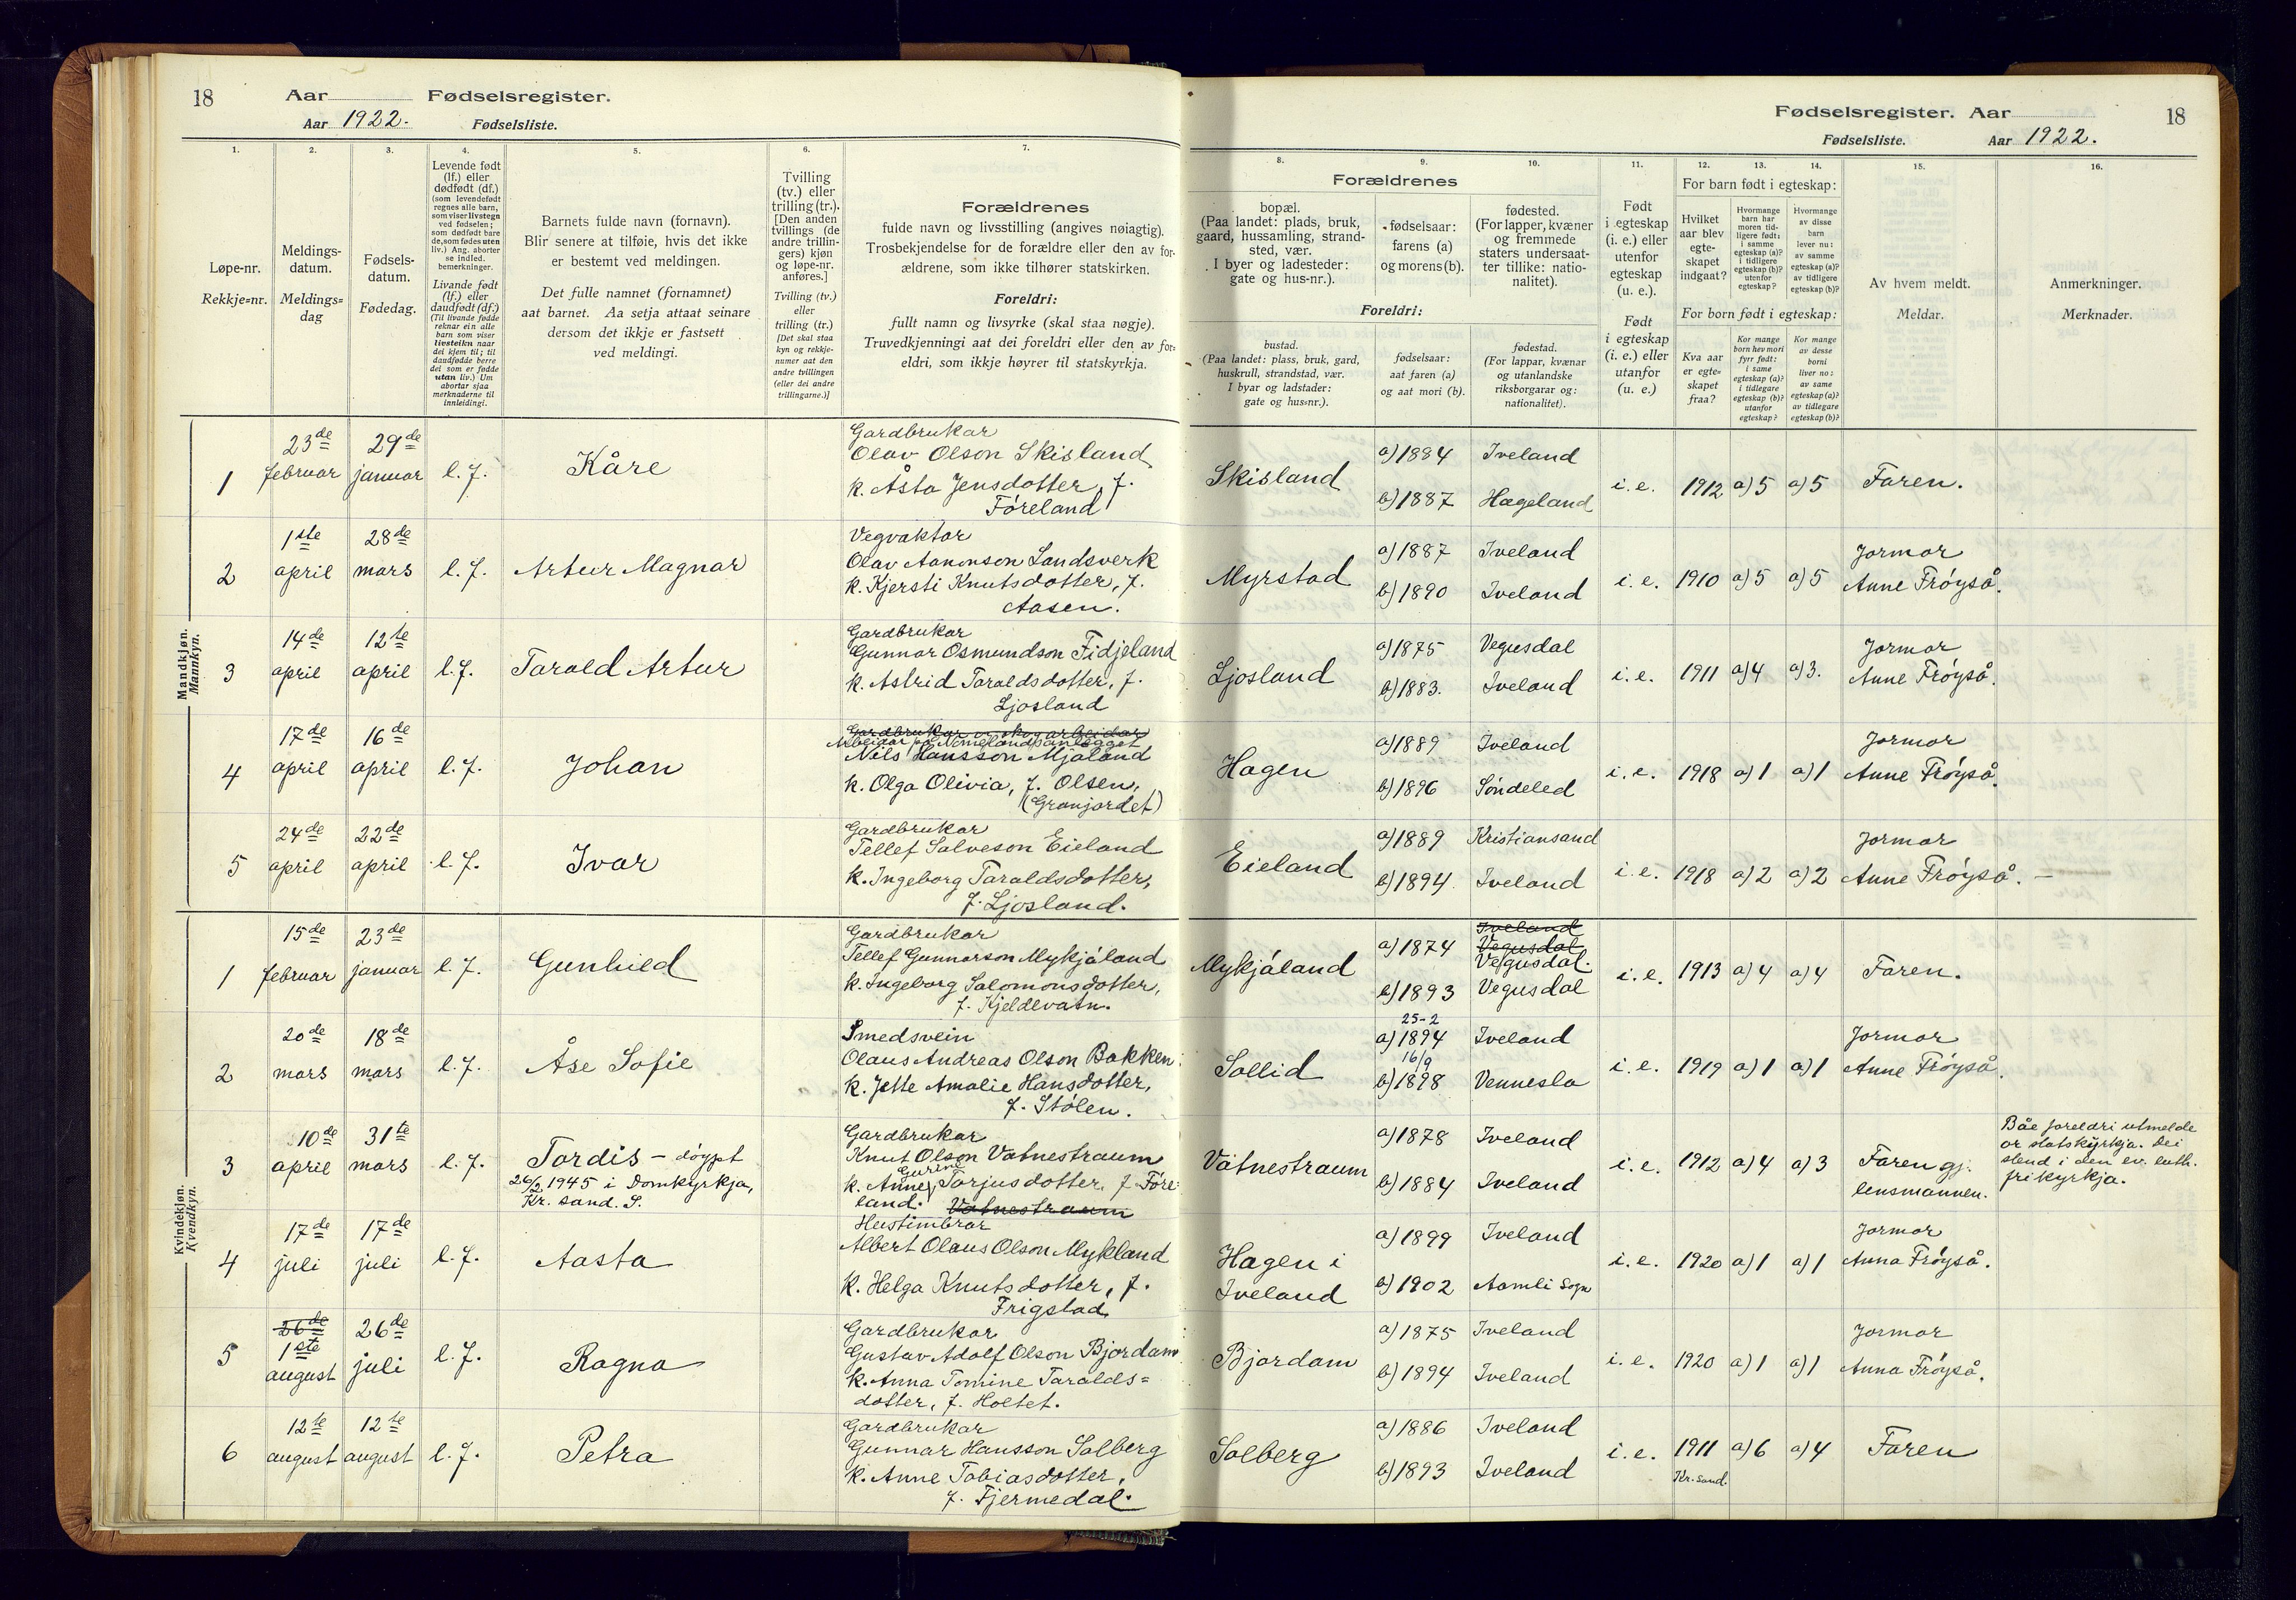 18 Aar Fødselsregister.
Aar 1922. Fødselsliste.
Fødselsregister. Aar 18
Fødselsliste. Aar 1922.
1.
Løpe-nr.
Rekkje=nr.
2.
Meldings-
datum.
Meldings=
dag
3.
Fødsels-
datum.
Fødedag.
4.
Levende født
(lf.) eller
dødfødt (df.)
(som levendefødt
regnes alle barn,
som viser livstegn
ved fødselen;
som dødfødt bare
de, som fødes uten
liv.) Ang. aborter
se indled.
bemerkninger.
Livande født
(lf.) eller
daudfødt (df.)
(Til livande fødde
reknar ein alle
barn som viser
livsteikn naar
dei kjem til; til
daudfødde berre
dei som er fødde
utan liv.) Um
abortar sjaa
merknaderne til
innleidingi.
5.
Barnets fulde navn (fornavn).
Blir senere at tilføie, hvis det ikke
er bestemt ved meldingen.
Det fulle namnet (fornamnet)
aat barnet. Aa setja attaat seinare
dersom det ikkje er fastsett
ved meldingi.
6.
Tvilling
(tv.) eller
trilling (tr.).
[Den anden
tvillings (de
andre trillin-
gers) kjøn
og løpe-nr.
anføres.]
Tvilling (tv.)
eller
trilling (tr.)
[Det skal staa
kyn og rekkje-
numer aat den
andre tvillingen
(eller dei andre
trillingarne.)]
7.
Forældrenes
fulde navn og livsstilling (angives nøiagtig).
Trosbekjendelse for de forældre eller den av for-
ældrene, som ikke tilhører statskirken.
Foreldri:
fullt namn og livsyrke (skal staa nøgje).
Truvedkjenningi aat dei foreldri eller den av for-
eldri, som ikkje høyrer til statskyrkja.
Forældrenes
8.
bopæl.
(Paa landet: plads, bruk,
gaard, hussamling, strand-
sted, vær.
I byer og ladesteder:
gate og hus-nr.).
9.
fødselsaar:
farens (a)
og morens (b).
10.
fødested.
(For lapper, kvæner
og fremmede
staters undersaat-
ter tillike: natio-
nalitet).
Foreldri:
bustad.
(Paa landet: plass, bruk, gard,
huskrull, strandstad, vær.
I byar og ladstader:
gate og hus=nr.).
fødselsaar:
aat faren (a)
og aat mori (b).
fødestad.
(For lappar, kvænar
og utanlandske
riksborgarar og:
nationalitet).
11.
Født
i egteskap
(i. e.) eller
utenfor
egteskap
(u. e.).
Født
i egteskap
(i. e.) eller
utanfor
egteskap
(u. e.)
For barn født i egteskap:
12.
Hvilket
aar blev
egte-
skapet
indgaat?
13.
Hvormange
barn har
moren tid-
ligere født:
i samme
egteskap (a)?
i tidligere
egteskap (b)?
utenfor
egteskap?
14.
Hvormange
av disse
barn
lever nu:
av samme
egteskap (a)?
av tidligere
egteskap (b)?
For born født i egteskap:
Kva aar
er egte=
skapet
fraa?
Kor mange
born hev mori
fyrr født:
i same
egteskap (a)?
i tidlegare
egteskap (b)?
utanfor
egteskap?
Kor mange
av desse
borni
liver no:
av same
egteskap (a)?
av tidlegare
egteskap (b)?
15.
Av hvem meldt.
Meldar.
16.
Anmerkninger.
Merknader.
Mandkjøn.
Mannkyn.
1
23de
februar
29de
januar
l. f.
Kåre
Gardbrukar
Olav Olson Skisland
k. Åsta Jensdotter, f.
Føreland
Skisland
a) 1884 Iveland
b) 1887 Hægeland
i. e. 1912 a) 5 a) 5 Faren.
2
1ste
april
28de
mars
l. f.
Artur Magnar
Vegvaktar
Olav Aanonson Landsverk
k. Kjersti Knutsdotter, f.
Aasen.
Myrstad
a) 1887 Iveland
b) 1890 Iveland
i. e. 1910 a) 5 a) 5
Jormor
Anne Frøyså.
3
14de
april
12te
april
l. f.
Tarald Artur
Gardbrukar
Gunnar Osmundson Fidjeland
k. Astrid Taraldsdotter, f.
Ljosland
Ljosland
a) 1875 Vegusdal
b) 1883. Iveland
i. e. 1911 a) 4 a) 3.
Jormor
Anne Frøyså.
4
17de
april
16de
april
l. f.
Johan
Gardbrukar og skogarbeidar
Arbeidar på Nomelandsanlegget
Nils Hansson Mjåland
k. Olga Olivia, f. Olsen,
(Granjordet)
Hagen
a) 1889 Iveland
b) 1896 Søndeled
i. e. 1918 a) 1 a) 1
Jormor
Anne Frøyså.
5
24de
april
22de
april
l. f.
Ivar
Gardbrukar
Tellef Salveson Eieland
k. Ingeborg Taraldsdotter,
f. Ljosland.
Eieland
a) 1889 Kristiansand
b) 1894. Iveland
i. e. 1918 a) 2 a) 2
Jormor
Anne Frøyså. —
Kvindekjøn.
Kvendkyn.
1
15de
februar
23de
januar
l. f.
Gunhild
Gardbrukar
Tellef Gunnarson Mykjåland
k. Ingeborg Salomonsdotter,
f. Kjeldevatn.
Mykjåland
a) 1874
Iveland
Vegusdal
Vegusdal.
b) 1893 Vegusdal
i. e. 1913 a) 4 a) 4 Faren.
2
20de
mars
18de
mars
l. f.
Åse Sofie
Smedsvein
Olaus Andreas Olson Bakken
k. Jette Amalie Hansdotter,
f. Stølen.
Sollid
25-2
a) 1894 Iveland
16/9
b) 1898 Vennesla
i. e. 1919 a) 1 a) 1
Jormor
Anne Frøyså.
3
10de
april
31te
mars
l. f.
Tordis – døypt
26/2 1945 i Domkyrkja,
Kr. sand. S.
Gardbrukar
Knut Olson Vatnestraum
Gurine
k. Anne Torjusdotter, f. Føre-
land. Vatnestraum
Vatnestraum
a) 1878 Iveland
b) 1884 Iveland
i. e. 1912 a) 4 a) 3
Faren gj.
lensmannen.
Båe foreldri utmelde
or statskyrkja. Dei
stend i den ev. luth.
frikyrkja.
4
17de
juli
17de
juli
l. f.
Aasta
Hustimbrar
Albert Olaus Olson Mykland
k. Helga Knutsdotter, f.
Frigstad
Hagen i
Iveland
a) 1899 Iveland
b) 1902 Aamli sogn
i. e. 1920 a) 1 a) 1
Jormor
Anna Frøyså.
5
26de
1ste
august
26de
juli
l. f.
Ragna
Gardbrukar
Gustav Adolf Olson Bjordam
k. Anna Tomine Taralds=
dotter, f. Holtet.
Bjordam
a) 1875 Iveland
b) 1894 Iveland
i. e. 1920 a) 1 a) 1
Jormor
Anna Frøyså.
6
12te
august
12te
august
l. f.
Petra
Gardbrukar
Gunnar Hansson Solberg
k. Anne Tobiasdotter,
f. Fjermedal.
Solberg
a) 1886 Iveland
b) 1893 Iveland
i. e. 1911 a) 6 a) 4 Faren
Kr. sand.